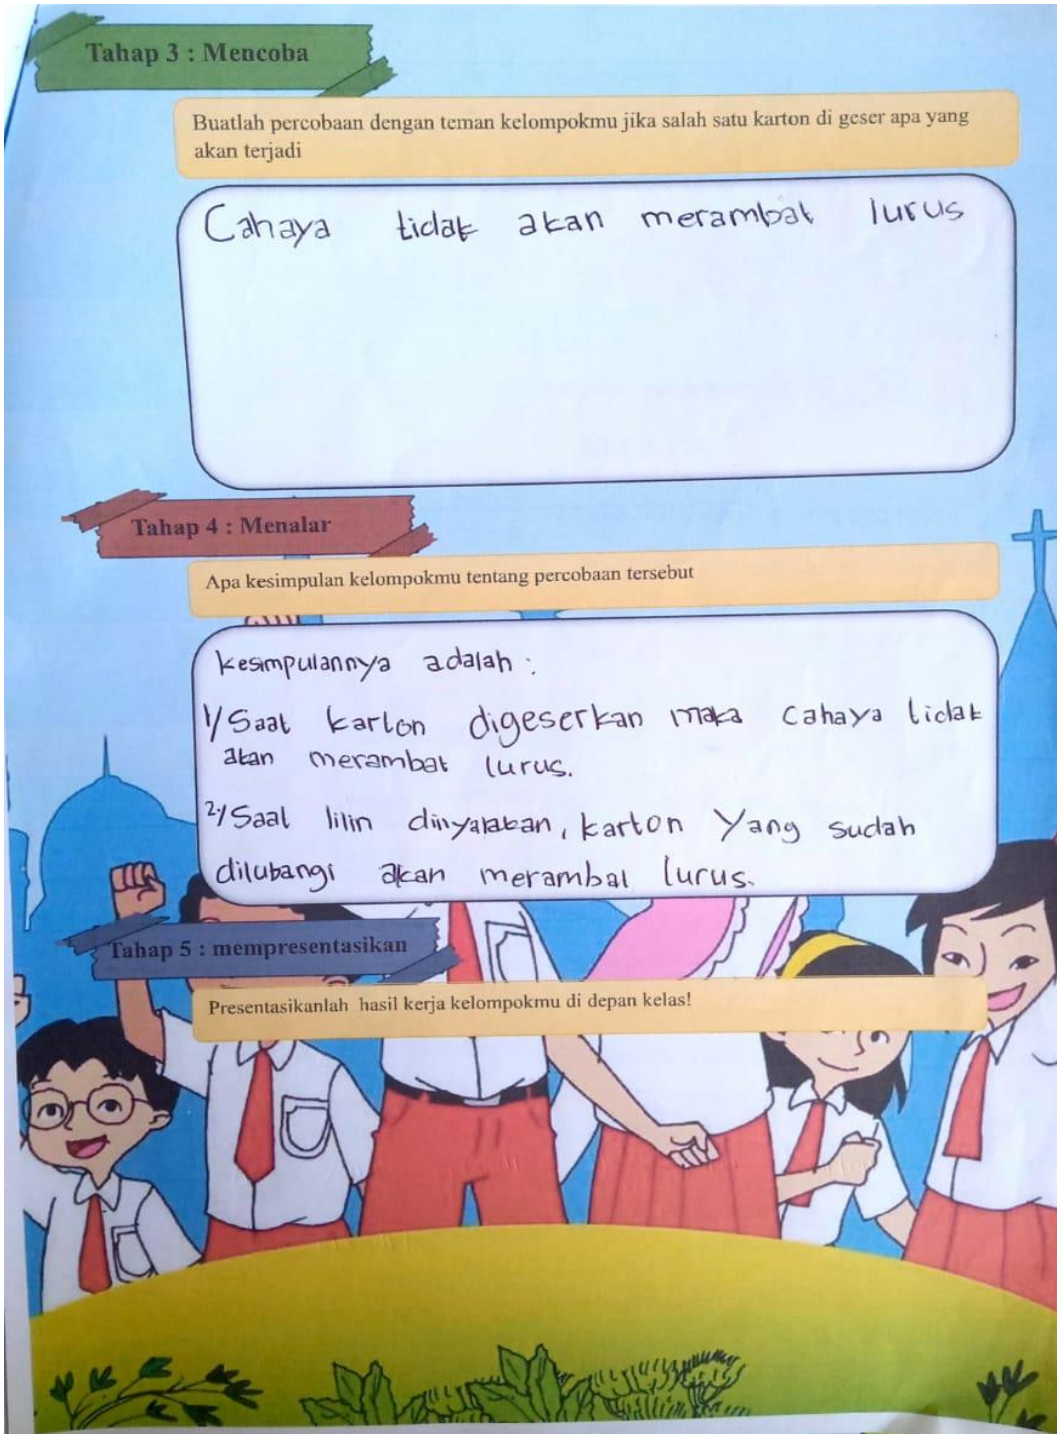 Tahap 3 : Mencoba
Buatlah percobaan dengan teman kelompokmu jika salah satu karton di geser apa yang
akan terjadi
Cahaya tidak akan merambat lurus
Tahap 4 : Menalar
Apa kesimpulan kelompokmu tentang percobaan tersebut
kesimpulannya adalah :
1/ Saat karton digeserkan maka cahaya tidak
akan merambat lurus.
2/ Saat lilin dinyalakan, karton yang sudah
dilubangi akan merambat lurus.
Tahap 5 : mempresentasikan
Presentasikanlah hasil kerja kelompokmu di depan kelas!